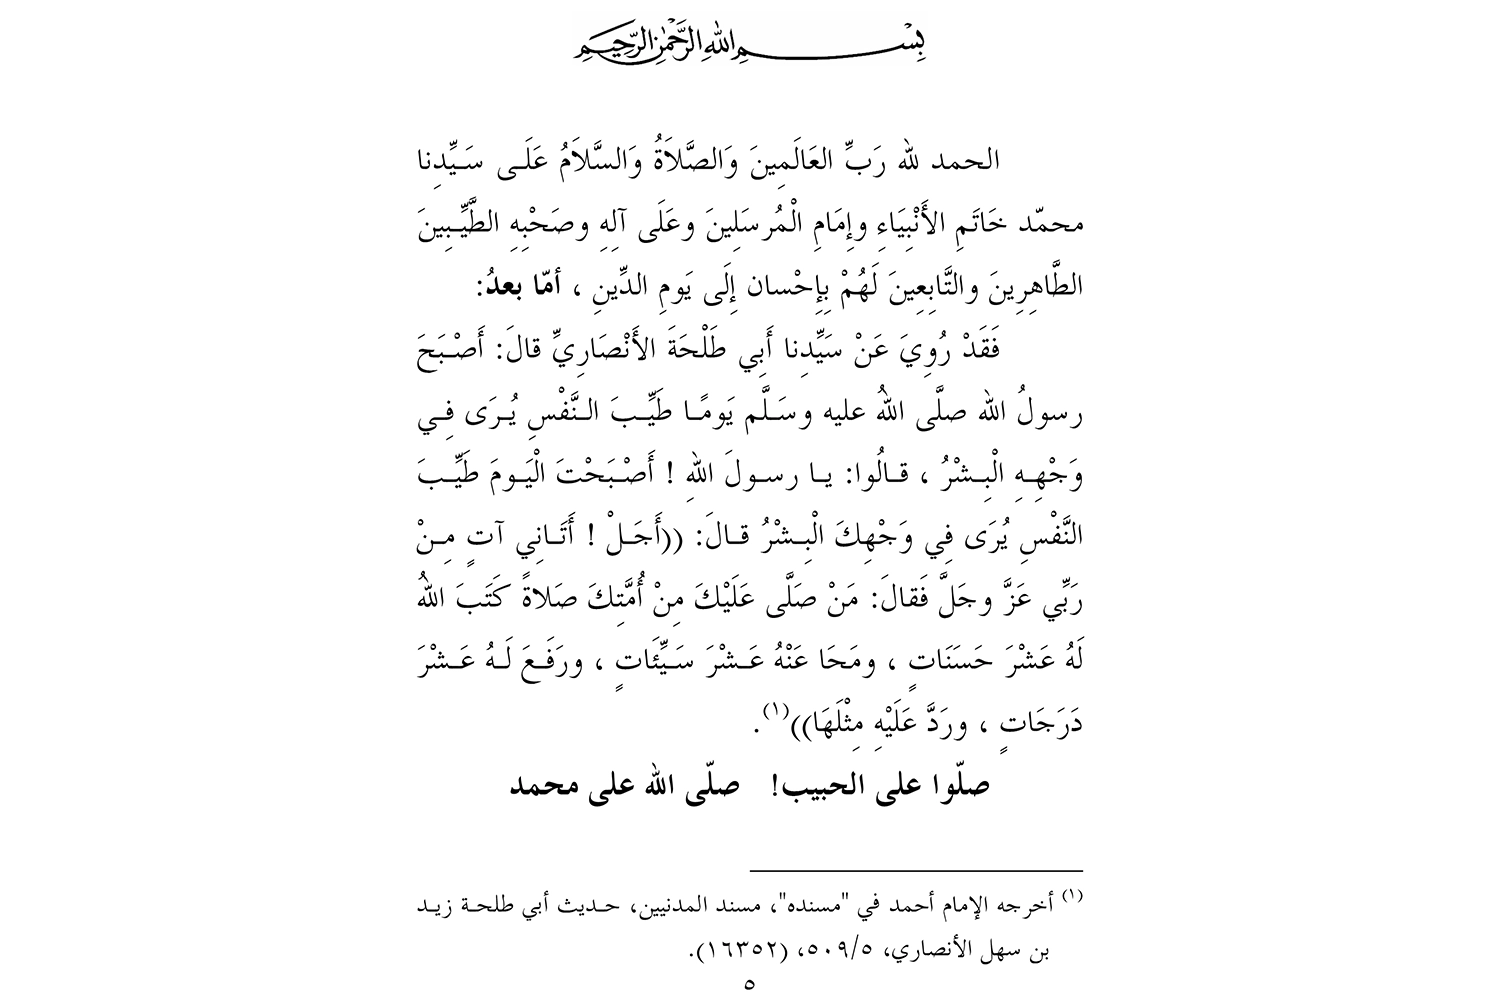 بِسْمِ اللهِ الرَّحْمٰنِ الرَّحِيْمِ
الحمد لله رَبِّ العَالَمِينَ وَالصَّلاَةُ وَالسَّلاَمُ عَلَى سَيِّدِنا
محمّد خَاتَمِ الأَنْبِيَاءِ وإِمَامِ الْمُرسَلِينَ وعَلَى آلِهِ وصَحْبِهِ الطَّيِّبِينَ
الطَّاهِرِينَ والتَّابِعِينَ لَهُمْ بِإِحْسان إِلَى يَومِ الدِّينِ ، أمّا بعدُ:
فَقَدْ رُوِيَ عَنْ سَيِّدِنا أَبِي طَلْحَةَ الأَنْصَارِيِّ قالَ: أَصْبَحَ
رسولُ الله صلَّى اللهُ عليه وسَلَّم يَومًا طَيِّبَ النَّفْسِ يُرَى فِي
وَجْهِهِ الْبِشْرُ ، قالُوا: يا رسولَ اللهِ ! أَصْبَحْتَ الْيَومَ طَيِّبَ
النَّفْسِ يُرَى فِي وَجْهِكَ الْبِشْرُ قالَ: ((أَجَلْ ! أَتَانِي آتٍ مِنْ
رَبِّي عَزَّ وجَلَّ فَقالَ: مَنْ صَلَّى عَلَيْكَ مِنْ أُمَّتِكَ صَلاةً كَتَبَ اللهُ
لَهُ عَشْرَ حَسَنَاتٍ ، ومَحَا عَنْهُ عَشْرَ سَيِّئَاتٍ ، ورَفَعَ لَهُ عَشْرَ
دَرَجَاتٍ ، ورَدَّ عَلَيْهِ مِثْلَهَا))(١).
صلّوا على الحبيب! صلّى الله على محمد
(١) أخرجه الإمام أحمد في "مسنده"، مسند المدنيين، حديث أبي طلحة زيد
بن سهل الأنصاري، ٥٠٩/٥، (١٦٣٥٢).
٥